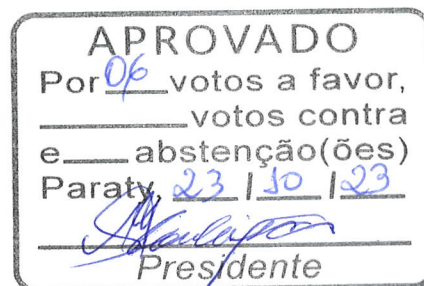 APROVADO
Por 06 votos a favor,
______ votos contra
e____abstenção(ões)
Paraty, 23 / 10 / 23
Presidente